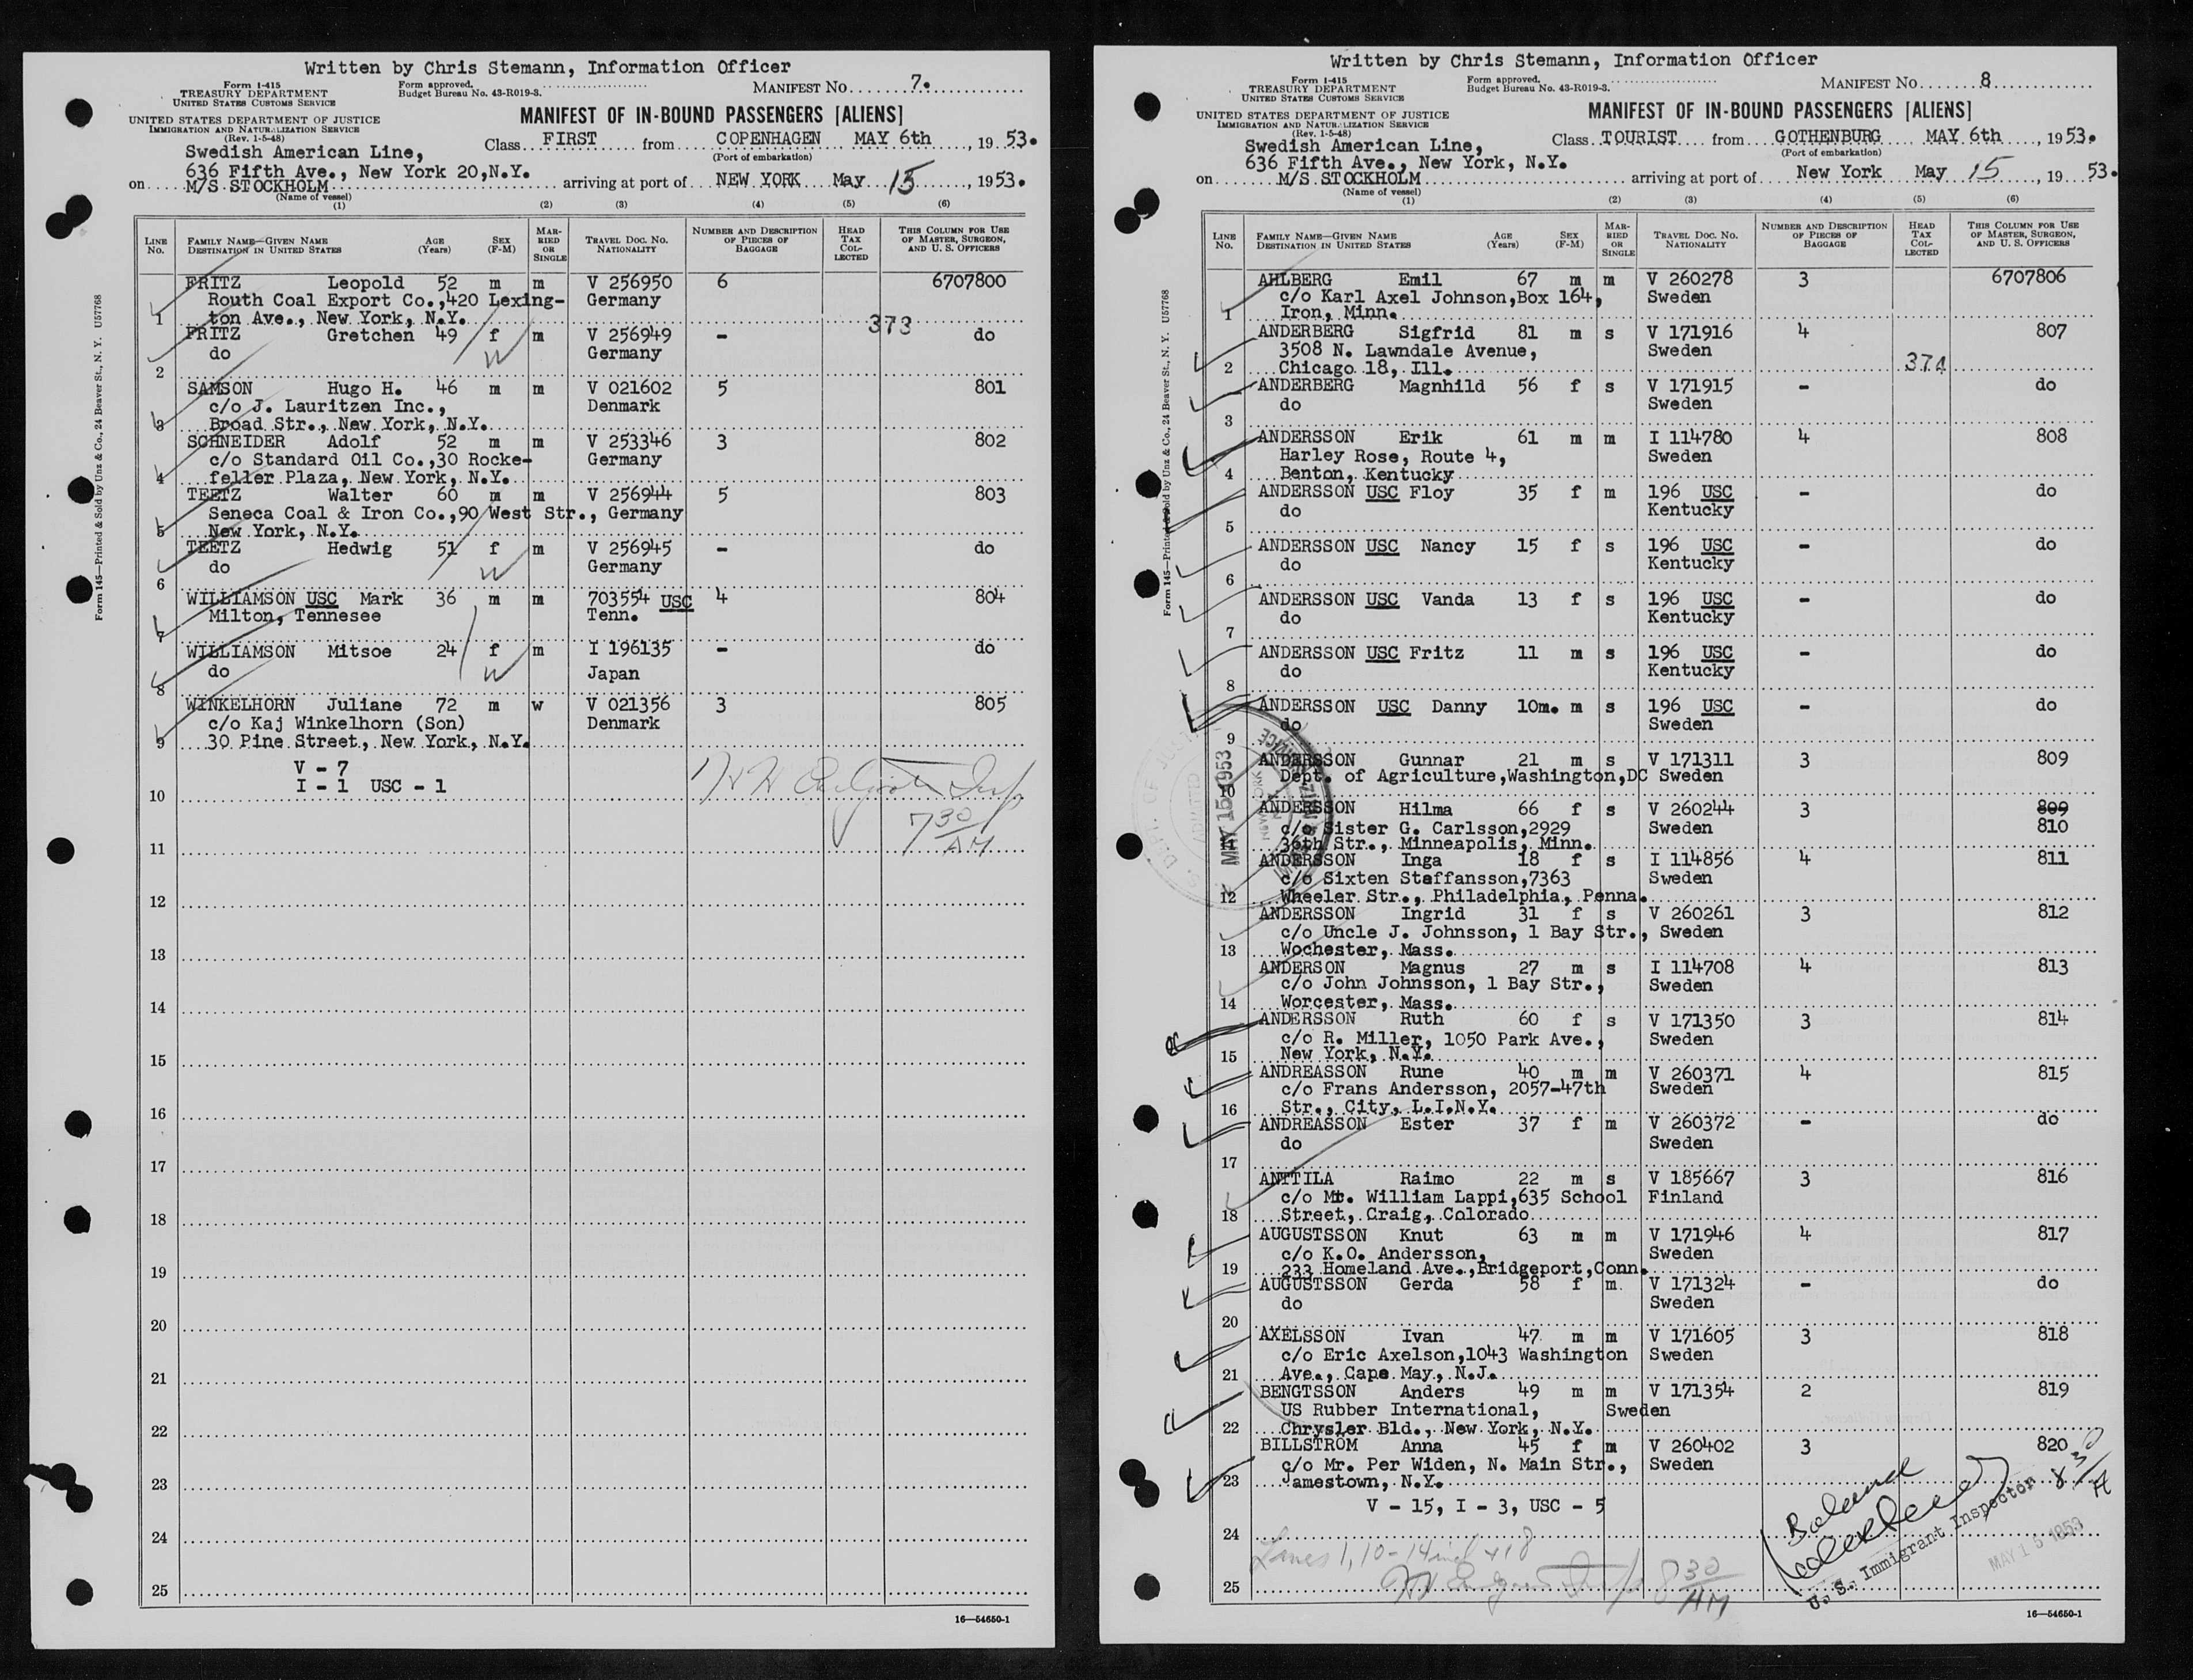 Written by Chris Stemann, Information Officer
Form I-415
TREASURY DEPARTMENT
UNITED STATES CUSTOMS SERVICE
Form approved.
Budget Bureau No. 43-R019-3.
MANIFEST No. 7.
UNITED STATES DEPARTMENT OF JUSTICE
IMMIGRATION AND NATURALIZATION SERVICE
(Rev. 1-5-48)
MANIFEST OF IN-BOUND PASSENGERS [ALIENS]
Class FIRST from COPENHAGEN MAY 6th, 1953.
(Port of embarkation)
Swedish American Line,
636 Fifth Ave., New York 20,N.Y.
on M/S STOCKHOLM arriving at port of NEW YORK May 15, 1953.
(Name of vessel)
(1) (2) (3) (4) (5) (6)
LINE No. FAMILY NAME—GIVEN NAME DESTINATION IN UNITED STATES AGE (Years) SEX (F-M) MARRIED OR SINGLE TRAVEL DOC. NO. NATIONALITY NUMBER AND DESCRIPTION OF PIECES OF BAGGAGE HEAD TAX COLLECTED THIS COLUMN FOR USE OF MASTER, SURGEON, AND U. S. OFFICERS
FRITZ Leopold 52 m m V 256950 6 6707800
Routh Coal Export Co.,420 Lexing- Germany
1 ton Ave., New York, N.Y. 373
FRITZ Gretchen 49 f m V 256949 - do
do W Germany
2
SAMSON Hugo H. 46 m m V 021602 5 801
c/o J. Lauritzen Inc., Denmark
3 Broad Str., New York, N.Y.
SCHNEIDER Adolf 52 m m V 253346 3 802
c/o Standard Oil Co.,30 Rocke- Germany
4 feller Plaza, New York, N.Y.
TEETZ Walter 60 m m V 256944 5 803
Seneca Coal & Iron Co.,90 West Str., Germany
5 New York, N.Y.
TEETZ Hedwig 51 f m V 256945 - do
do W Germany
6
WILLIAMSON USC Mark 36 m m 703554 USC 4 804
Milton, Tennesee Tenn.
7
WILLIAMSON Mitsoe 24 f m I 196135 - do
do W Japan
8
WINKELHORN Juliane 72 m w V 021356 3 805
c/o Kaj Winkelhorn (Son) Denmark
9 30 Pine Street, New York, N.Y.
V - 7
I - 1 USC - 1
10
7 30 AM
11
12
13
14
15
16
17
18
19
20
21
22
23
24
25
16—54650-1
Form 145—Printed & Sold by Unz & Co., 24 Beaver St., N. Y. U57768
Written by Chris Stemann, Information Officer
Form I-415
TREASURY DEPARTMENT
UNITED STATES CUSTOMS SERVICE
Form approved.
Budget Bureau No. 43-R019-3.
MANIFEST No. 8
UNITED STATES DEPARTMENT OF JUSTICE
IMMIGRATION AND NATURALIZATION SERVICE
(Rev. 1-5-48)
MANIFEST OF IN-BOUND PASSENGERS [ALIENS]
Class TOURIST from GOTHENBURG MAY 6th, 1953.
(Port of embarkation)
Swedish American Line,
636 Fifth Ave., New York, N.Y.
on M/S STOCKHOLM arriving at port of New York May 15, 1953.
(Name of vessel)
(1) (2) (3) (4) (5) (6)
LINE No. FAMILY NAME—GIVEN NAME DESTINATION IN UNITED STATES AGE (Years) SEX (F-M) MARRIED OR SINGLE TRAVEL DOC. NO. NATIONALITY NUMBER AND DESCRIPTION OF PIECES OF BAGGAGE HEAD TAX COLLECTED THIS COLUMN FOR USE OF MASTER, SURGEON, AND U. S. OFFICERS
AHLBERG Emil 67 m m V 260278 3 6707806
c/o Karl Axel Johnson,Box 164, Sweden
1 Iron, Minn.
ANDERBERG Sigfrid 81 m s V 171916 4 807
3508 N. Lawndale Avenue, Sweden
2 Chicago 18, Ill. 374
ANDERBERG Magnhild 56 f s V 171915 - do
do Sweden
3
ANDERSSON Erik 61 m m I 114780 4 808
Harley Rose, Route 4, Sweden
4 Benton, Kentucky
ANDERSSON USC Floy 35 f m 196 USC - do
do Kentucky
5
ANDERSSON USC Nancy 15 f s 196 USC - do
do Kentucky
6
ANDERSSON USC Vanda 13 f s 196 USC - do
do Kentucky
7
ANDERSSON USC Fritz 11 m s 196 USC - do
do Kentucky
8
ANDERSSON USC Danny 10m. m s 196 USC - do
do Sweden
9
ANDERSSON Gunnar 21 m s V 171311 3 809
Dept. of Agriculture,Washington,DC Sweden
10
ANDERSSON Hilma 66 f s V 260244 3 809
c/o Sister G. Carlsson,2929 Sweden 810
11 36th Str., Minneapolis, Minn.
ANDERSSON Inga 18 f s I 114856 4 811
c/o Sixten Staffansson,7363 Sweden
12 Wheeler Str., Philadelphia, Penna.
ANDERSSON Ingrid 31 f s V 260261 3 812
c/o Uncle J. Johnsson, 1 Bay Str., Sweden
13 Wochester, Mass.
ANDERSON Magnus 27 m s I 114708 4 813
c/o John Johnsson, 1 Bay Str., Sweden
14 Worcester, Mass.
ANDERSSON Ruth 60 f s V 171350 3 814
c/o R. Miller, 1050 Park Ave., Sweden
15 New York, N.Y.
ANDREASSON Rune 40 m m V 260371 4 815
c/o Frans Andersson, 2057-47th Sweden
16 Str., City, L.I.N.Y.
ANDREASSON Ester 37 f m V 260372 - do
do Sweden
17
ANTTILA Raimo 22 m s V 185667 3 816
c/o Mr. William Lappi,635 School Finland
18 Street, Craig, Colorado
AUGUSTSSON Knut 63 m m V 171946 4 817
c/o K.O. Andersson, Sweden
19 233 Homeland Ave.,Bridgeport,Conn.
AUGUSTSSON Gerda 58 f m. V 171324 - do
do Sweden
20
AXELSSON Ivan 47 m m V 171605 3 818
c/o Eric Axelson,1043 Washington Sweden
21 Ave., Cape May, N.J.
BENGTSSON Anders 49 m m V 171354 2 819
US Rubber International, Sweden
22 Chrysler Bld., New York, N.Y.
BILLSTRÖM Anna 45 f m V 260402 3 820
c/o Mr. Per Widen, N. Main Str., Sweden
23 Jamestown, N.Y.
V - 15, I - 3, USC - 5
24
Lines 1, 10-14 incl + 18
25
8 30 AM
U. S. Immigrant Inspector
8 30 A
MAY 15 1953
MAY 15 1953
16—54650-1
Form 145—Printed & Sold by Unz & Co., 24 Beaver St., N. Y. U57768